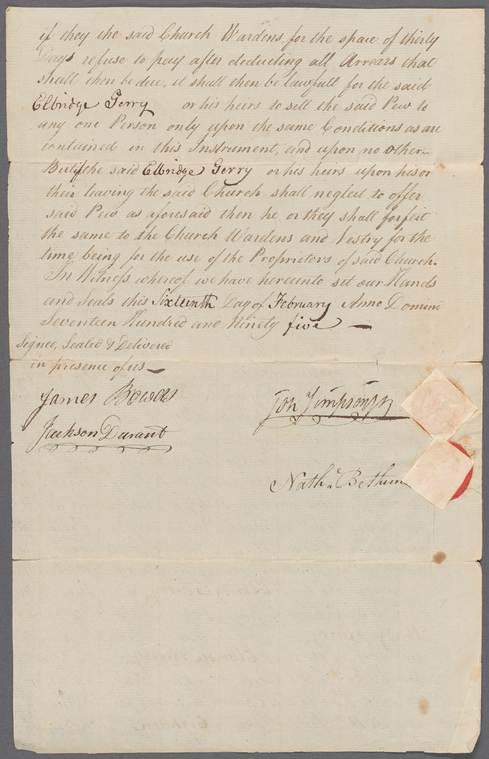 if they the said Church Wardens, for the space of thirty
Days refuse to pay after deducting all Arrears that
shall then be due, it shall then be lawfull for the said
Elbridge Gerry or his heirs to sell the said Pew to
any one Person only upon the same Conditions as are
contained in this Instrument, and upon no other
But if the said Elbridge Gerry or his heirs upon his or
their leaving the said Church shall neglect to offer
said Pew as aforesaid then he or they shall forfeit
the same to the Church Wardens and Vestry for the
time being for the use of the Proprietors of said Church.
In Witness whereof we have hereunto set our Hands
and Seals this Sixteenth Day of February Anno Domini
Seventeen Hundred and Ninety five
Signed, Sealed & Delivered
in presence of us
James
Jackson Durant
Jon Simpson Jr
Nathl Bethune